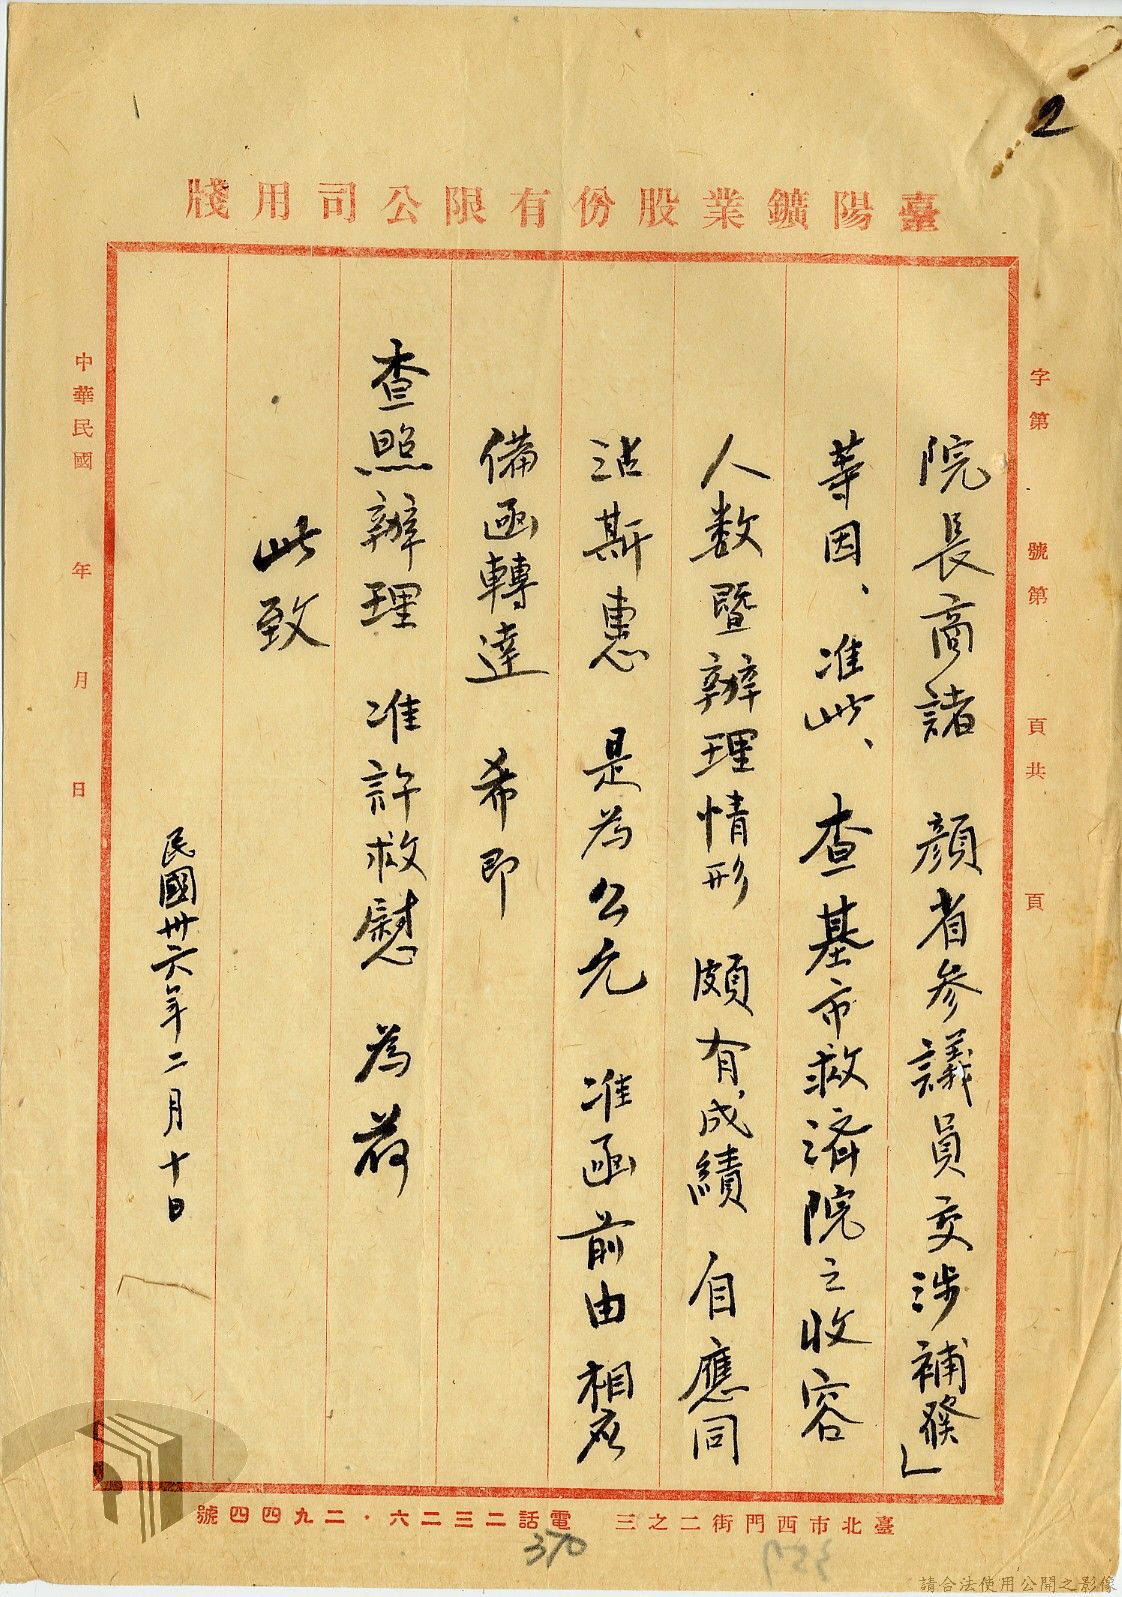 2
臺陽鑛業股份有限公司用牋
字第　號第　頁共　頁
院長商諸　顏省參議員交涉補發」
等因、准此、查基市救済院之收容
人数暨辦理情形　頗有成績　自應同
沾斯惠　是為公允　准函前由相应
備函轉達　希即
查照辦理　准許救慰　為荷
此致
民國卅六年二月十日
中華民國　年　月　日
臺北市西門街二之三　電話二三二六・二九四四號
370
請合法使用公開之影像